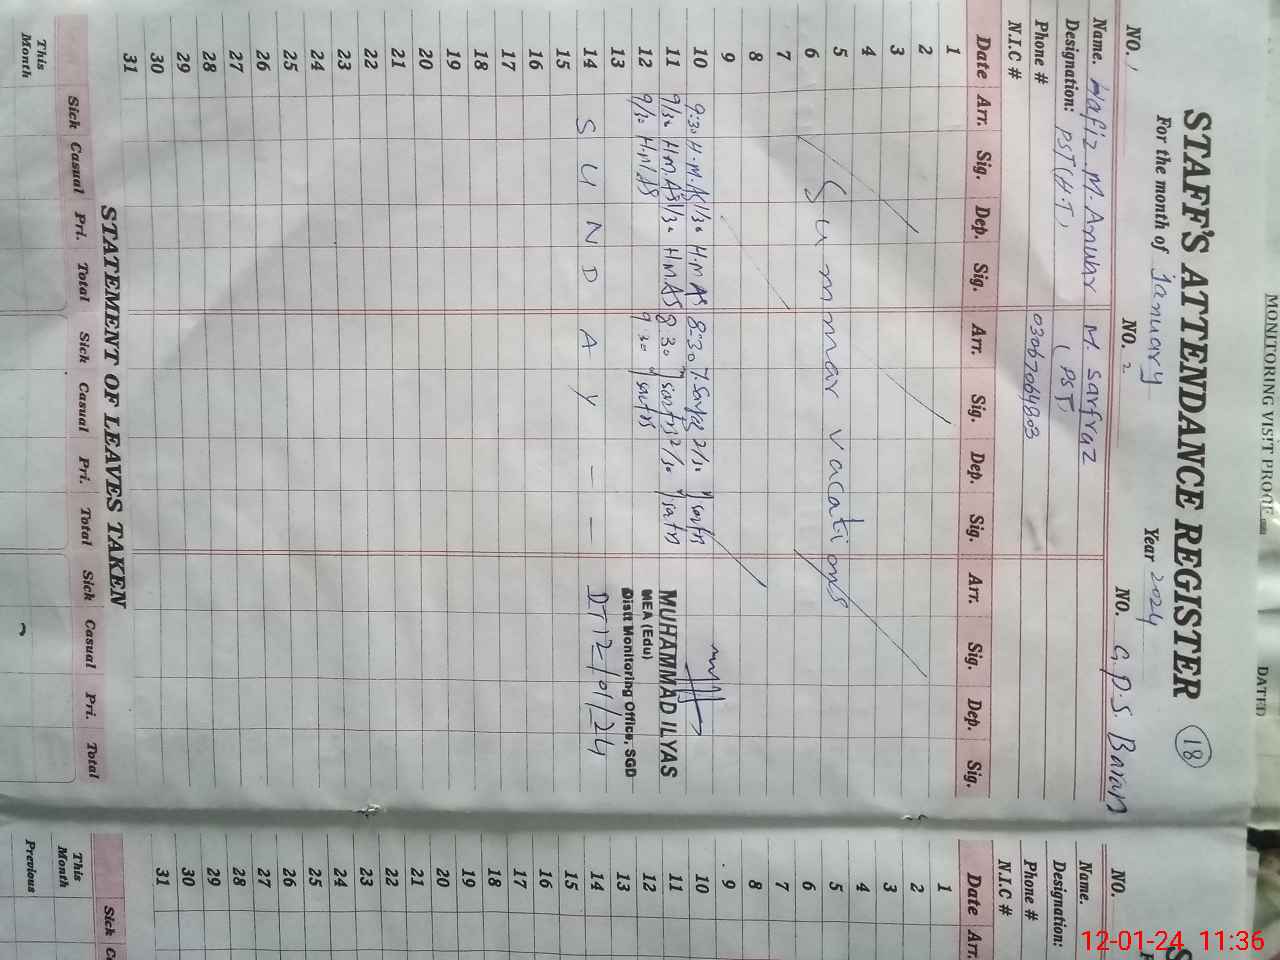 MONITORING VISIT PROOF
DATED
STAFF'S ATTENDANCE REGISTER
18
For the month of January Year 2024
NO. 1
NO. 2
NO. G.P.S. Baran
Name. Hafiz M. Anwar M. Sarfraz
Designation: PST (H.T) (PST)
Phone # 03067064803
N.I.C #
Date Arr. Sig. Dep. Sig. Arr. Sig. Dep. Sig. Arr. Sig. Dep. Sig.
1
2
3
4
5
6 Summar vacations
7
8
9
10 9:30 1/30 8:30 2/30
11 9/30 1/30 8:30 2/30 MUHAMMAD ILYAS
12 9/30 9:30 MEA (Edu)
13 Distt Monitoring Office, SGD
14 SUNDAY - - DT 12/01/24
15
16
17
18
19
20
21
22
23
24
25
26
27
28
29
30
31
STATEMENT OF LEAVES TAKEN
Sick Casual Pri. Total Sick Casual Pri. Total Sick Casual Pri. Total
This Month
NO.
Name.
Designation:
Phone #
N.I.C #
Date Arr.
1
2
3
4
5
6
7
8
9
10
11
12
13
14
15
16
17
18
19
20
21
22
23
24
25
26
27
28
29
30
31
Sick
This Month
Previous
12-01-24 11:36